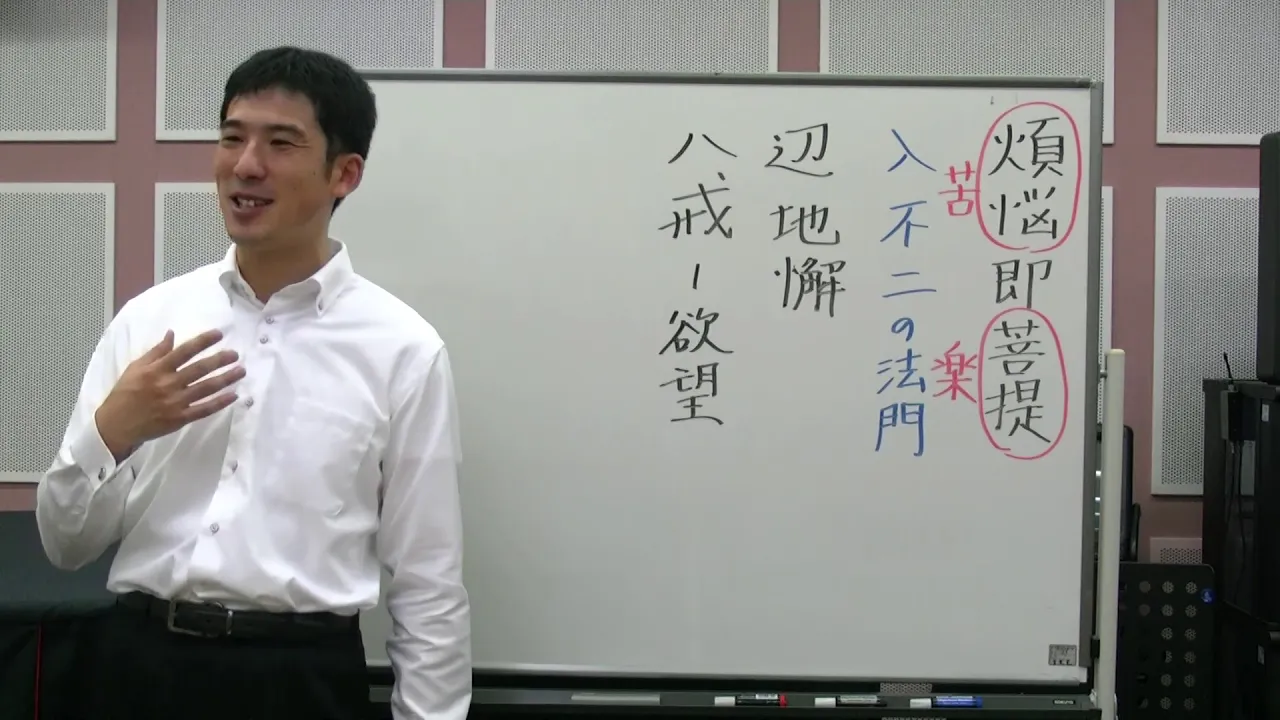 煩悩即菩提
苦
楽
入不二の法門
辺地懈
八戒ー欲望